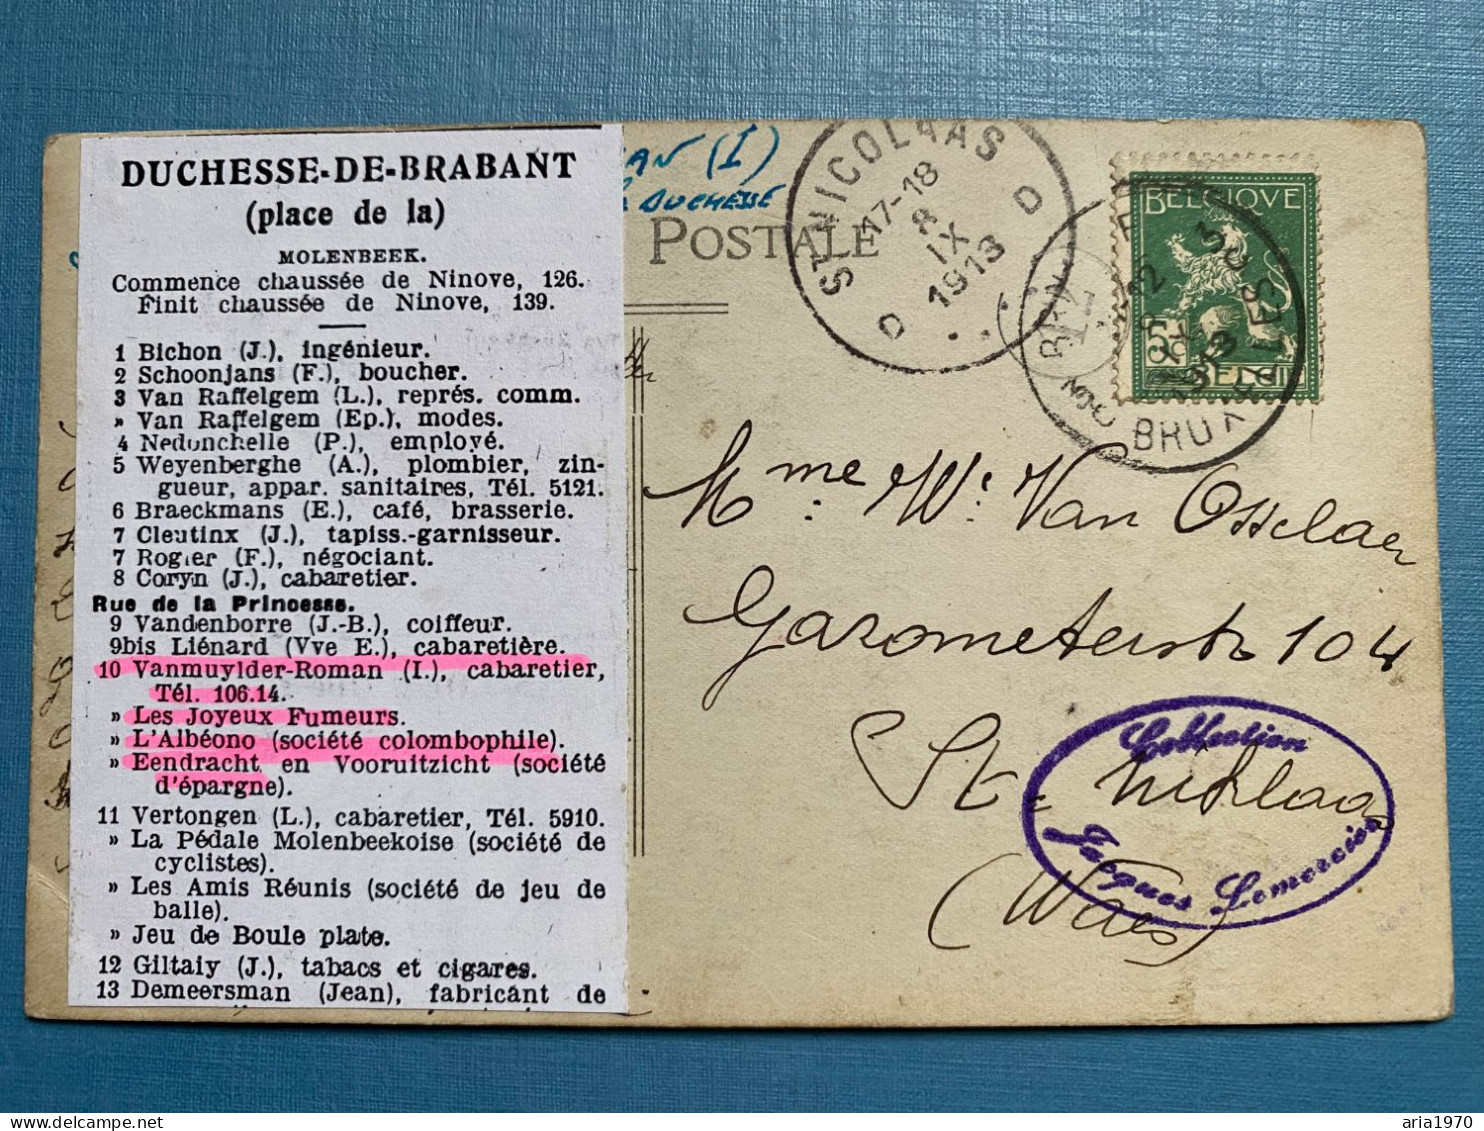 DUCHESSE-DE-BRABANT
(place de la)
MOLENBEEK.
Commence chaussée de Ninove, 126.
Finit chaussée de Ninove, 139.
1 Bichon (J.), ingénieur.
2 Schoonjans (F.), boucher.
3 Van Raffelgem (L.), représ. comm.
» Van Raffelgem (Ep.), modes.
4 Nedonchelle (P.), employé.
5 Weyenberghe (A.), plombier, zin-
gueur, appar. sanitaires, Tél. 5121.
6 Braeckmans (E.), café, brasserie.
7 Cleutinx (J.), tapiss.-garnisseur.
7 Rogier (F.), négociant.
8 Coryn (J.), cabaretier.
Rue de la Princesse.
9 Vandenborre (J.-B.), coiffeur.
9bis Liénard (Vve E.), cabaretière.
10 Vanmuylder-Roman (I.), cabaretier,
Tél. 106.14.
» Les Joyeux Fumeurs.
» L'Albéono (société colombophile).
» Eendracht en Vooruitzicht (société
d'épargne).
11 Vertongen (L.), cabaretier, Tél. 5910.
» La Pédale Molenbeekoise (société de
cyclistes).
» Les Amis Réunis (société de jeu de
balle).
» Jeu de Boule plate.
12 Giltaiy (J.), tabacs et cigares.
13 Demeersman (Jean), fabricant de
AN (I)
DUCHESSE
POSTALE
ST NICOLAAS
17-18
8
IX
1913
D D
BELGIQUE
5
BELGIË
12
1913
BRUXELLES
Mme. Wе. Van Osselaer
Gazometerstr 104
St. Niklaas
(Waes)
Collection
Jacques Lemercier
aria1970